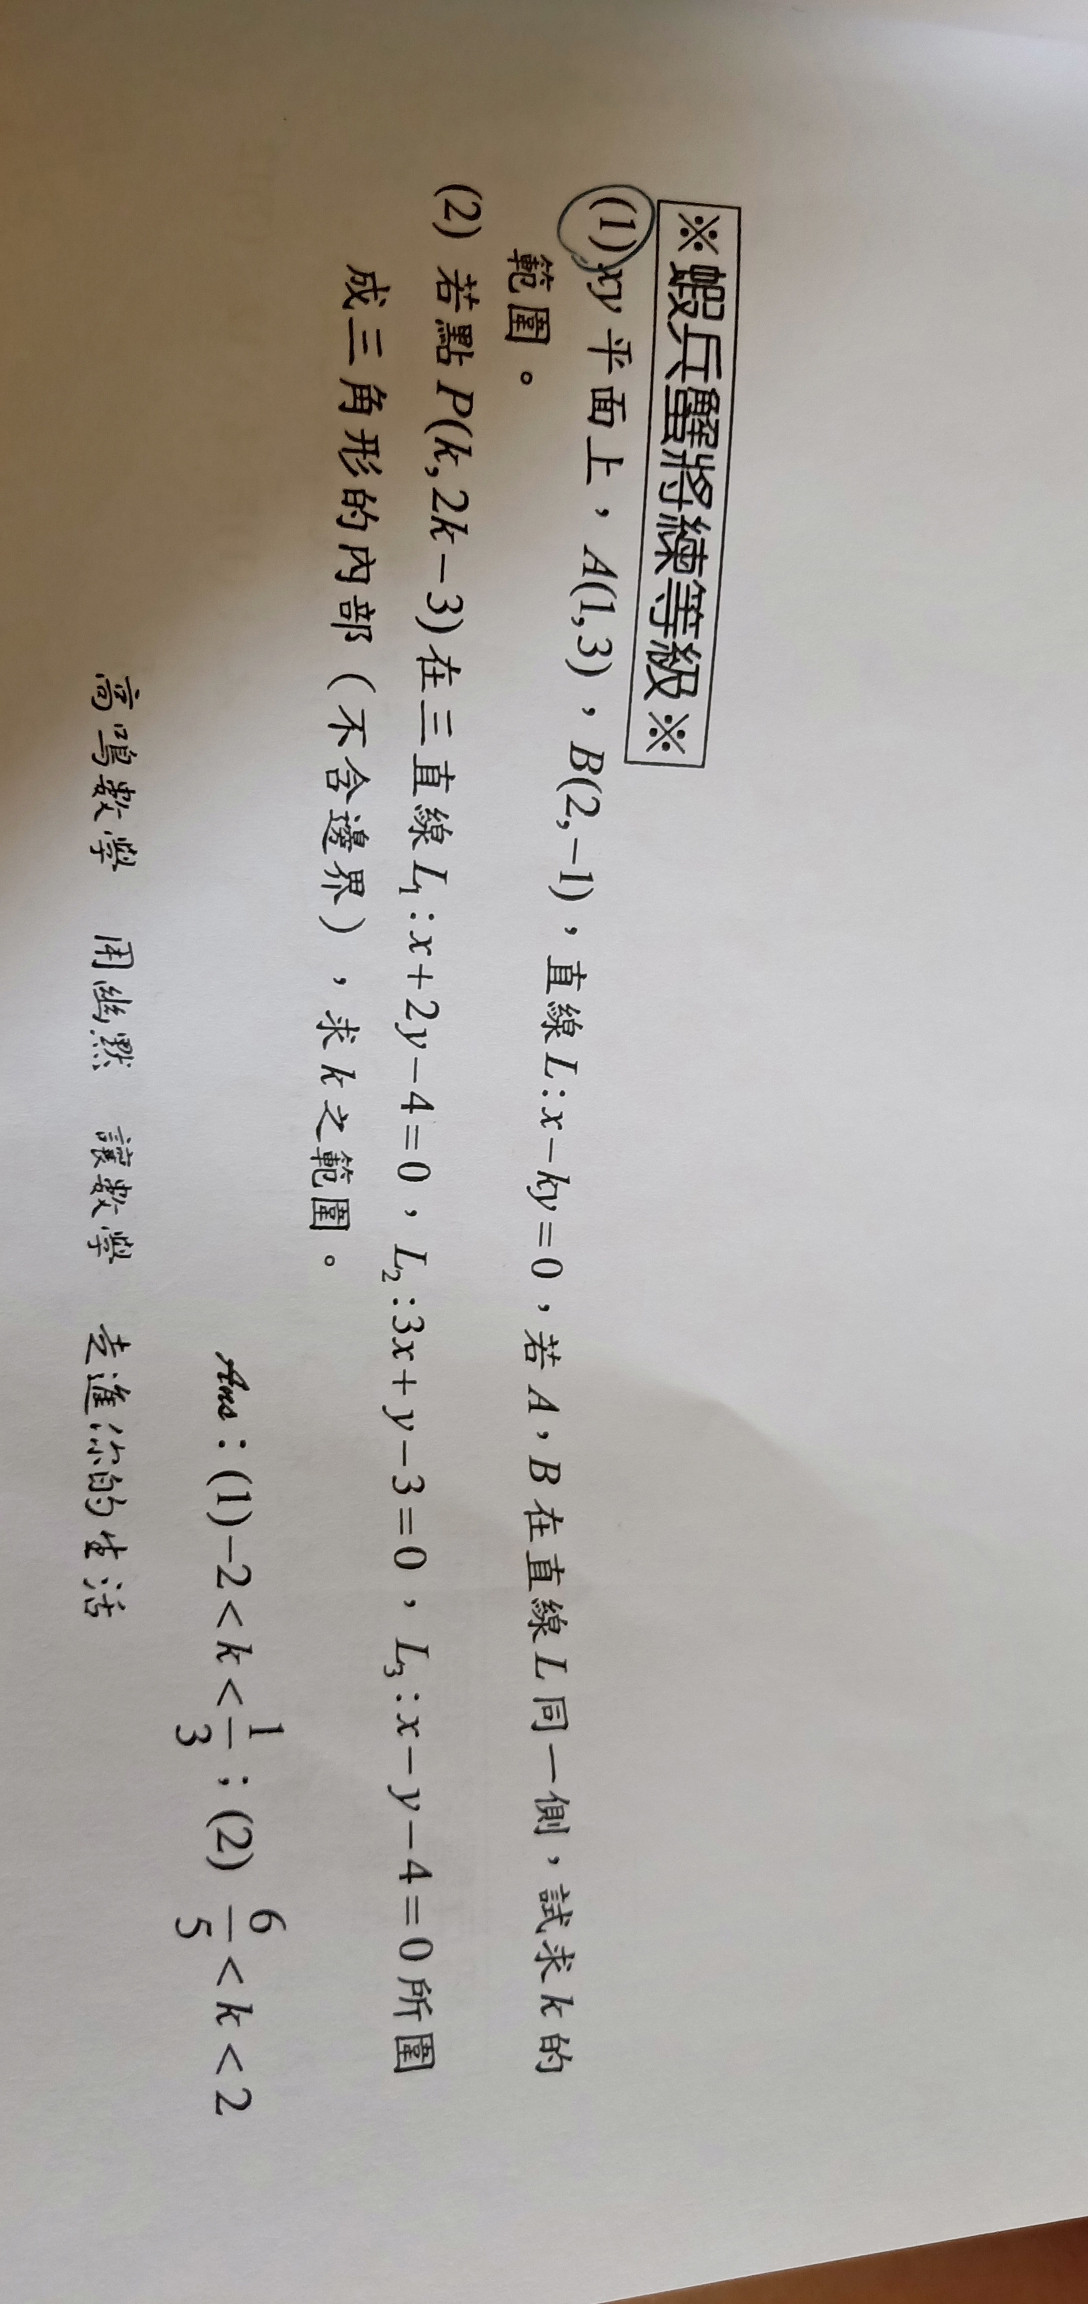 ※蝦兵蟹將練等級※
(1) xy平面上，A(1,3)，B(2,−1)，直線L:x−ky=0，若A，B在直線L同一側，試求k的
範圍。
(2) 若點P(k,2k−3)在三直線L₁:x+2y−4=0，L₂:3x+y−3=0，L₃:x−y−4=0所圍
成三角形的內部（不含邊界），求k之範圍。
Ans：(1)−2<k<1/3；(2) 6/5<k<2
高鳴數學 用幽默 讓數學 走進你的生活